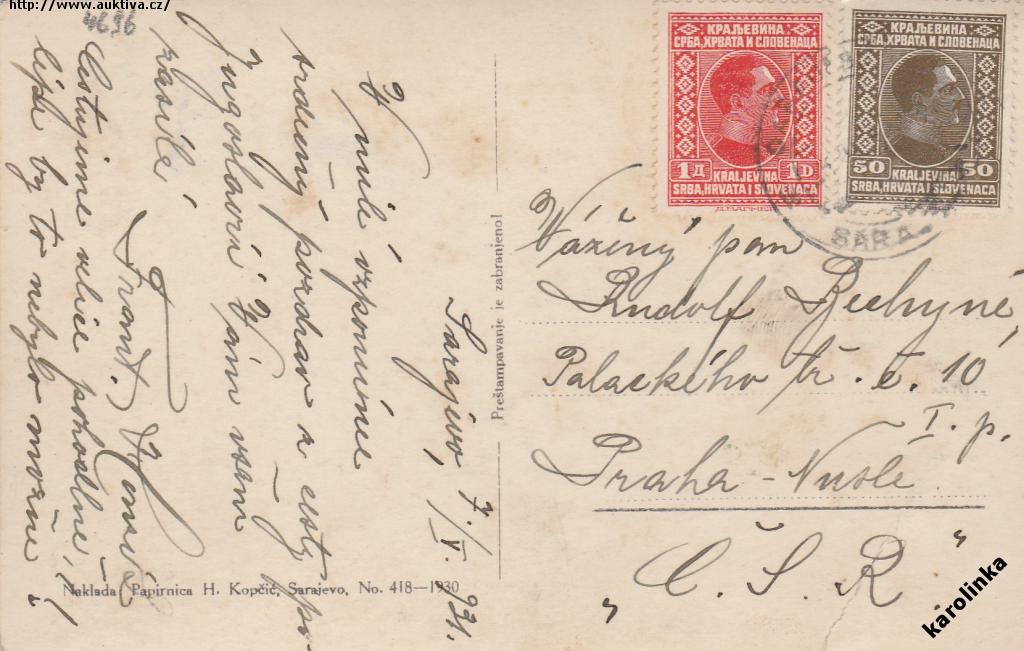 https://www.auktiva.cz/
4696
Sarajevo, 7./V. 931.
V milé vzpomínce
srdečný pozdrav z cesty po
Jugoslavii Vám všem
zasílá
Frant.
Cestujeme velice pohodlně,
lépe by to nebylo možné!
Preštampavanje je zabranjeno!
Naklada: Papirnica H. Kopčić, Sarajevo, No. 418—1930
КРАЉЕВИНА
СРБА, ХРВАТА И СЛОВЕНАЦА
1Д 1D
KRALJEVINA
SRBA, HRVATA I SLOVENACA
Д.ВАГНЕР
КРАЉЕВИНА
СРБА, ХРВАТА И СЛОВЕНАЦА
50 50
KRALJEVINA
SRBA, HRVATA I SLOVENACA
SARA
Vážený pan
Rudolf Bechyně,
Palackého tř. č. 10
I. p.
Praha - Nusle
„Č. S. R"
karolinka